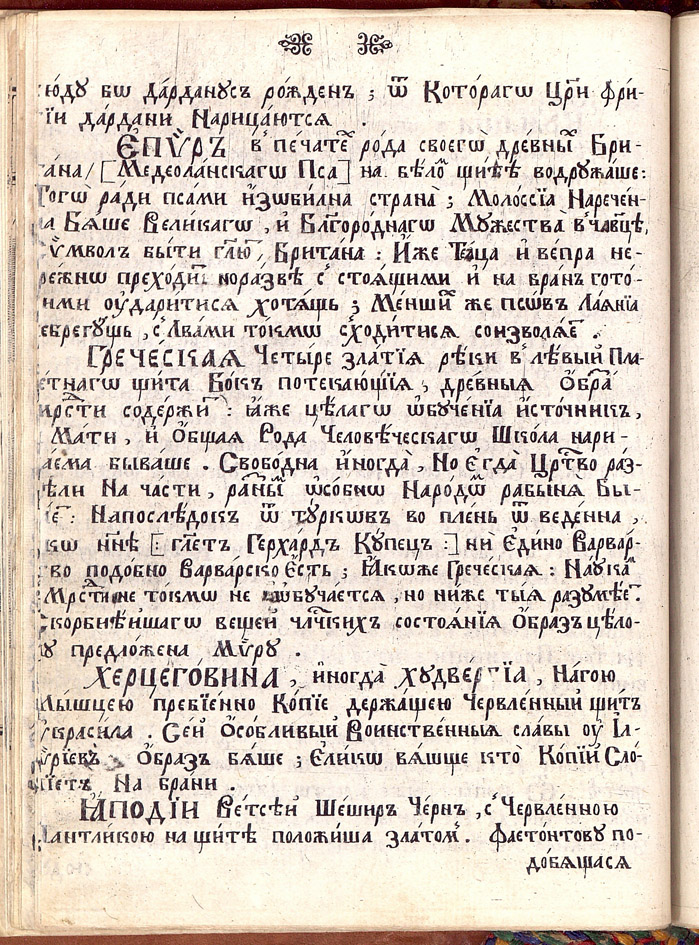 юду бѡ Да́рданусъ ро́жденъ ; ѿ Кото́рагѡ Цр҃и Фрѵ-
гі́и да́рдани Нарица́ются
ЄПѴ́РЪ в пе́чатѣ ро́да своегѡ̀ дре́вны Бри-
та́на/ [Медеола́нскагѡ Пса] на бѣ́ло щи́тѣ водружа́ше:
Тогѡ̀ ра́ди пса́ми и҆зѡби́лна страна̀ ; Моло́ссїа Нарече́н-
на Бя́ше Вели́кагѡ , и҆ Бл҃горо́днагѡ Му́жества в чл҃вцѣ,
Сѵ́мволъ бы́ти гл҃ю , Брита́на : И҆́же Те́лца и҆ ве́пра не-
бре́жнѡ преходи , по́развѣ с стоя́щими и҆ на бра́нъ гото́-
выми оу҆да́ритися хотя́щь ; Ме́нши же псѡ́въ Ла́янїа
небрегу́щь , с Лва́ми то́кмѡ сходи́тися соизволяе .
ГРЕ́ЧЕСКАЯ Четы́ре зла́тїя рѣ́ки в лѣ́вый Пла-
ме́тнагѡ щита̀ Бо́къ потека́ющїя , дре́вныя О҆́бра
Мрсти содержи : ꙗ҆́же цѣ́лагѡ ѡ҆буче́нїа и҆сто́чникъ ,
Ма́ти , и҆ О҆́бщая Ро́да Человѣ́ческагѡ Шко́ла нари-
ца́ема быва́ше . Свобо́дна и҆ногда̀ , Но Е҆гда̀ Црт҃во ра́з-
дѣли На ча́сти , ра́зны ѡ҆со́бнѡ Наро́дѡ рабы́ня Бы-
ві́е : Напослѣ́докъ ѿ ту́ркѡвъ во плѣ́нь ѿ веде́нна ,
ꙗ҆́кѡ нн҃ѣ [: гл҃етъ Герха́рдъ Ку́пецъ :] ни Е҆ди́но Варва́р-
ство подо́бно Варва́рско Е҆́сть ; ꙗ҆́коже Гре́ческая : Нау́ка
Мрсти не то́кмѡ не ѡ҆буча́ется , но ни́же ты́я разумѣ́е .
Скорбнѣ́ишагѡ веще́й чл҃ческихъ состоя́нїя О҆́бразъ цѣ́ло-
му предложе́на Мѵ́ру .
ХЕРЦЕГО́ВИНА , и҆ногда̀ худве́ргїа , На́гою
Мы́шцею пребїе́нно Ко́пїе держа́щею Червле́нный щи́тъ
Украси́ла . Се́й О҆со́бливый Вои́нственныя сла́вы оу҆ І҆л-
лѵ́рїевъ О҆́бразъ бя́ше ; Е҆ли́кѡ вя́щще кто̀ Ко́пїй Сло-
мі́етъ На бра́ни .
ꙖПО́ДїИ Ве́тсѣи Ше́широ Че́рнъ , с Червле́нною
Пантли́кою на щи́тѣ положи́ша злато́м . Фаето́нтову по-
до́бящася